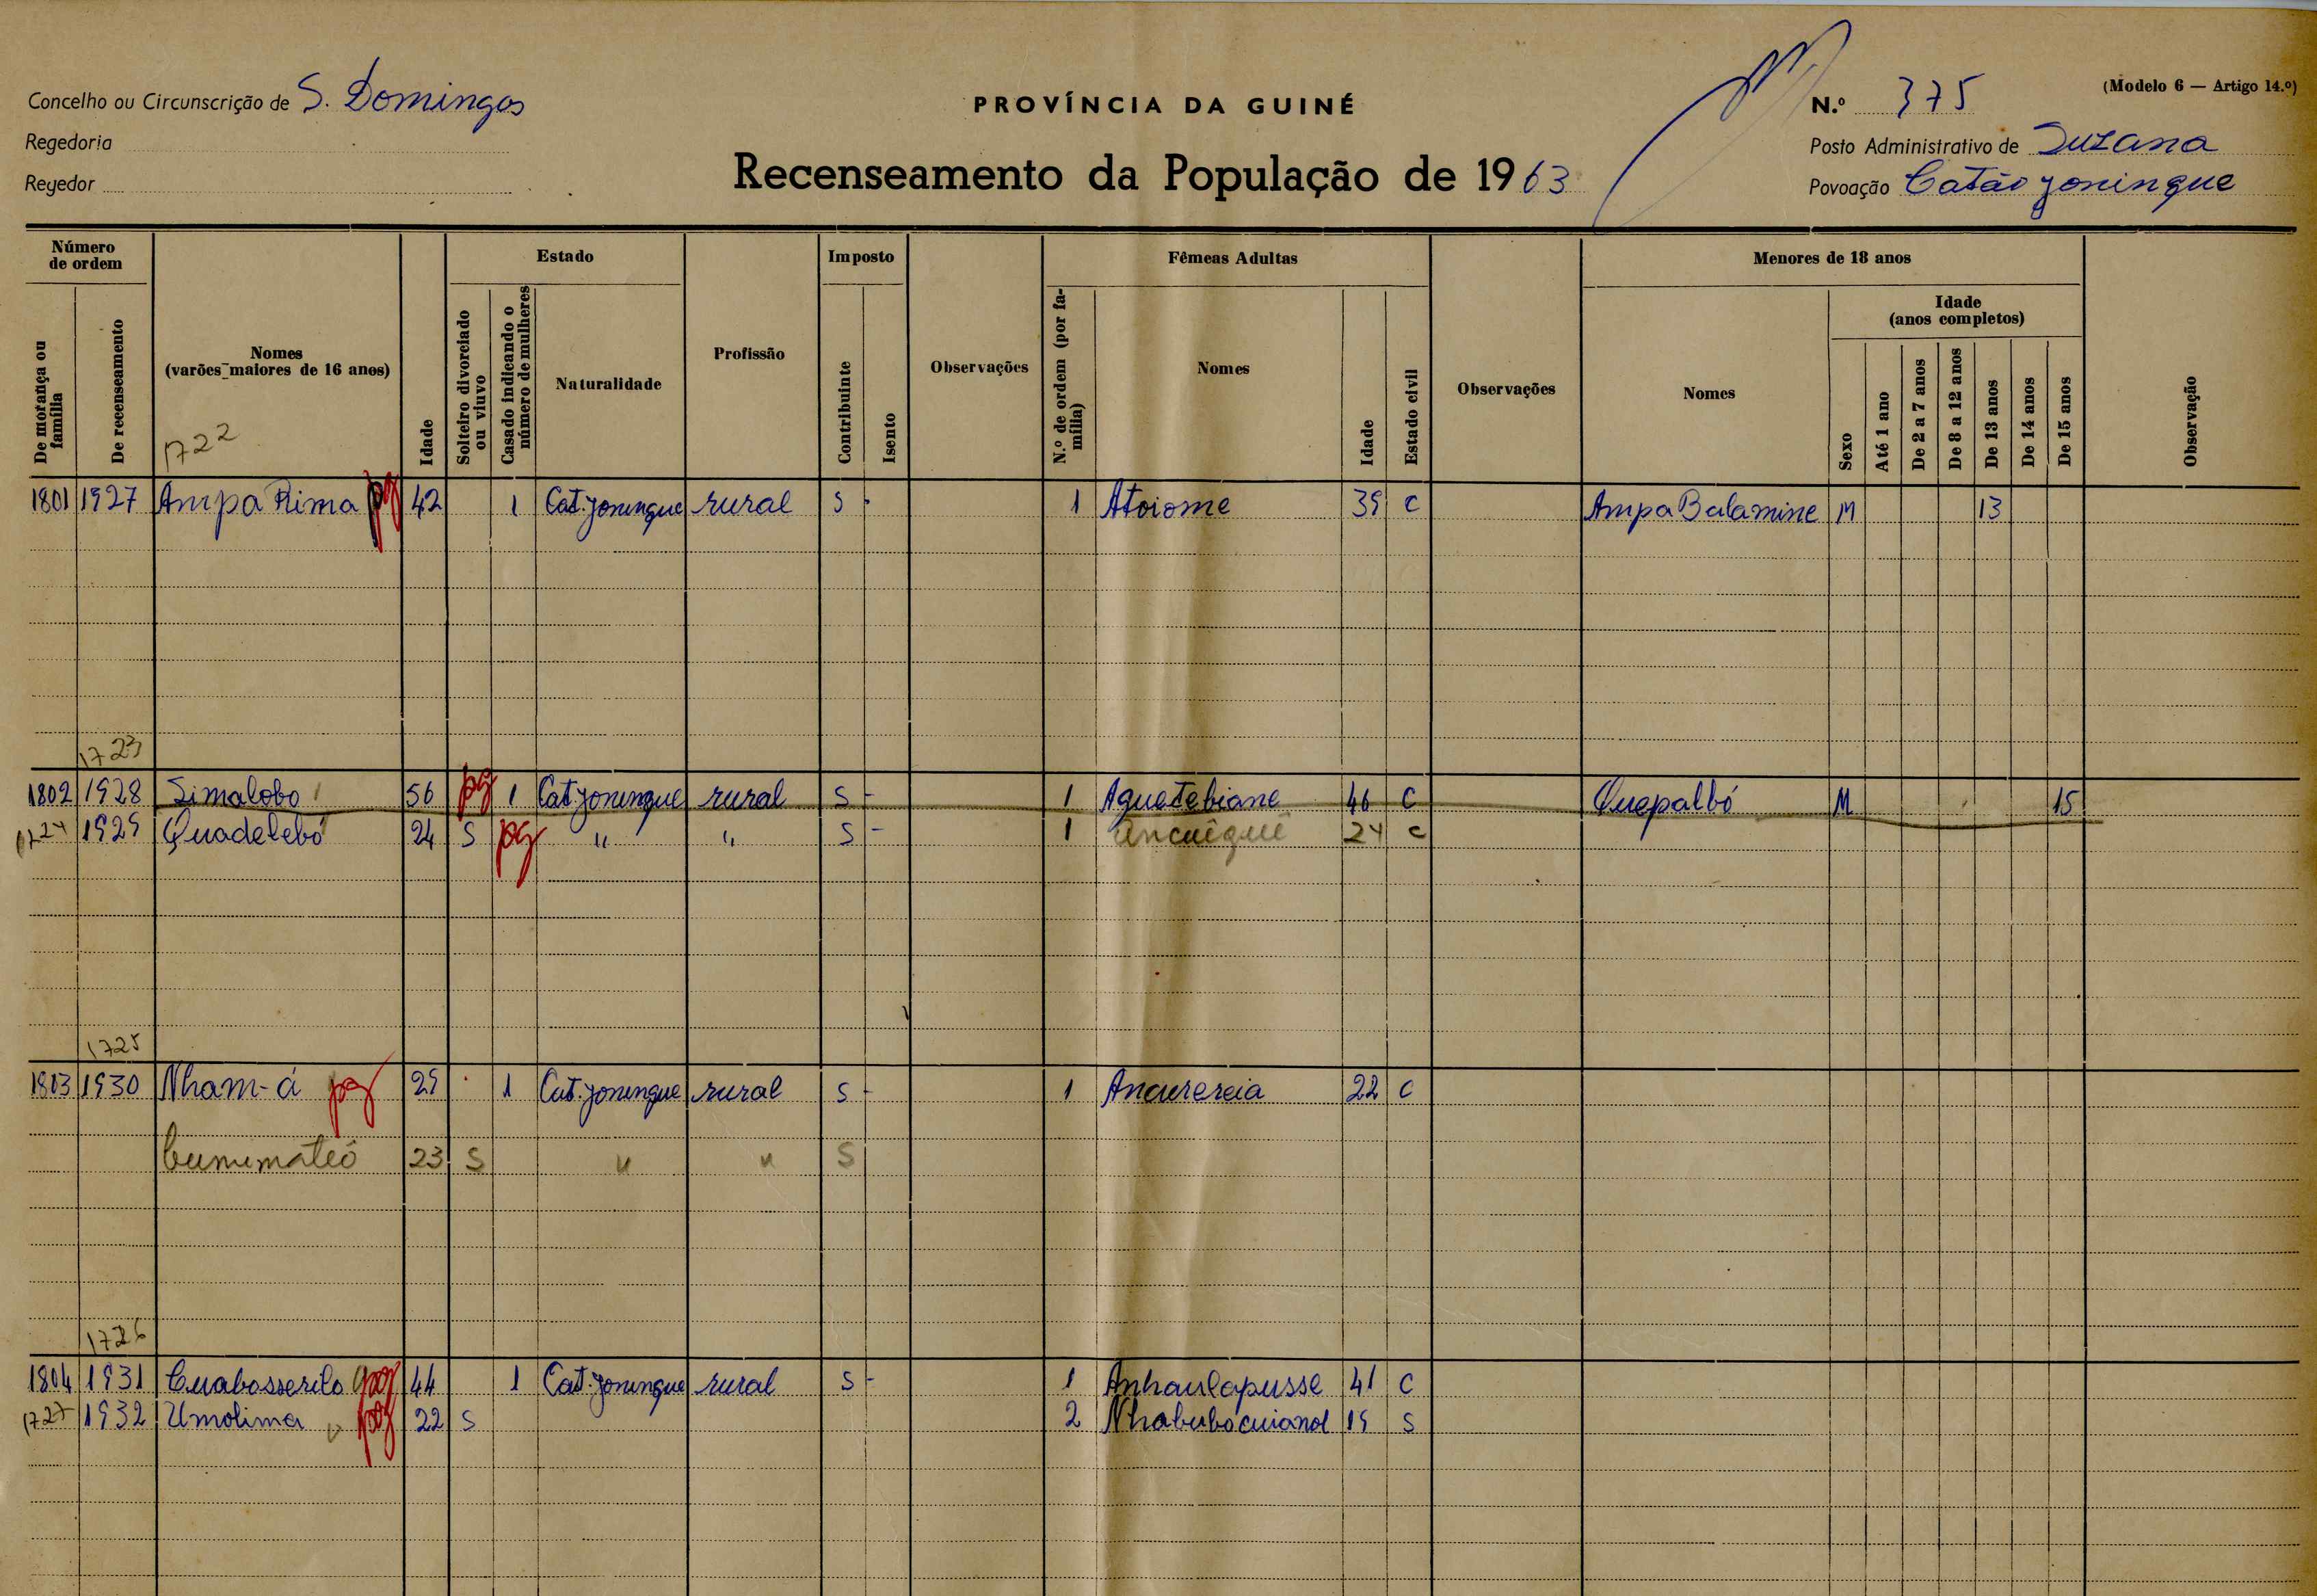 (Modelo 6 — Artigo 14.º)
Concelho ou Circunscrição de S. Domingos
PROVÍNCIA DA GUINÉ
N.º 375
Regedoria
Posto Administrativo de Suzana
Regedor
Recenseamento da População de 1963
Povoação Catão Joningue
Número de ordem
Estado
Imposto
Fêmeas Adultas
Menores de 18 anos
De morança ou família
De recenseamento
Nomes (varões maiores de 16 anos)
Idade
Solteiro divorciado ou viuvo
Casado indicando o número de mulheres
Naturalidade
Profissão
Contribuinte
Isento
Observações
N.º de ordem (por família)
Nomes
Idade
Estado civil
Observações
Nomes
Sexo
Idade (anos completos)
Até 1 ano
De 2 a 7 anos
De 8 a 12 anos
De 13 anos
De 14 anos
De 15 anos
Observação
1722
1801 1927 Ampa Rima pg 42 1 Cat. Joningue rural S - 1 Atoiome 39 C Ampa Balamine M 13
1723
1802 1928 Simalobo 56 pg 1 Cat Joningue rural S - 1 Aguetebiane 46 C Quepalbó M 15
1724 1929 Quadelebó 24 S pg " " S - 1 24 C
1725
1803 1930 Nham-á pg 29 1 Cat. Joningue rural S - 1 22 C
23 S " " S
1726
1804 1931 Cuabosserilo pg 44 1 Cat. Joningue rural S - 1 Anhaulapusse 41 C
1727 1932 Umolima pg 22 S 2 19 S